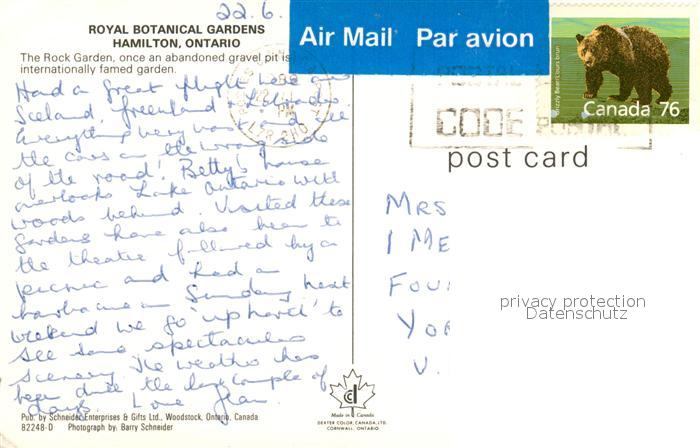 22.6.
ROYAL BOTANICAL GARDENS
HAMILTON, ONTARIO
The Rock Garden, once an abandoned gravel pit is
internationally famed garden.
Air Mail Par avion
Grizzly Bear, ours brun
Canada 76
CODE POSTAL
post card
Had a great flight here over
Iceland, Greenland & Labrador.
Everything very vast and all
the cars on the wrong side
of the road! Betty's house
overlooks Lake Ontario with
woods behind. Visited these
gardens have also been to
the theatre followed by a
picnic and had a
barbacue on Sunday next
weekend we go 'up north' to
see some spectacular
scenery. The weather has
been the last couple of
days. Love Jean.
MRS
1 ME
FOU
YOR
U.
privacy protection
Datenschutz
Pub. by Schneider Enterprises & Gifts Ltd., Woodstock, Ontario, Canada
82248-D Photograph by: Barry Schneider
Made in Canada
DEXTER COLOR, CANADA, LTD.
CORNWALL, ONTARIO